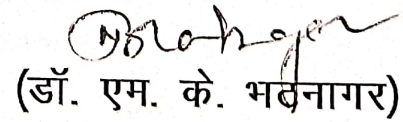 (डॉ. एम. के. भटनागर)